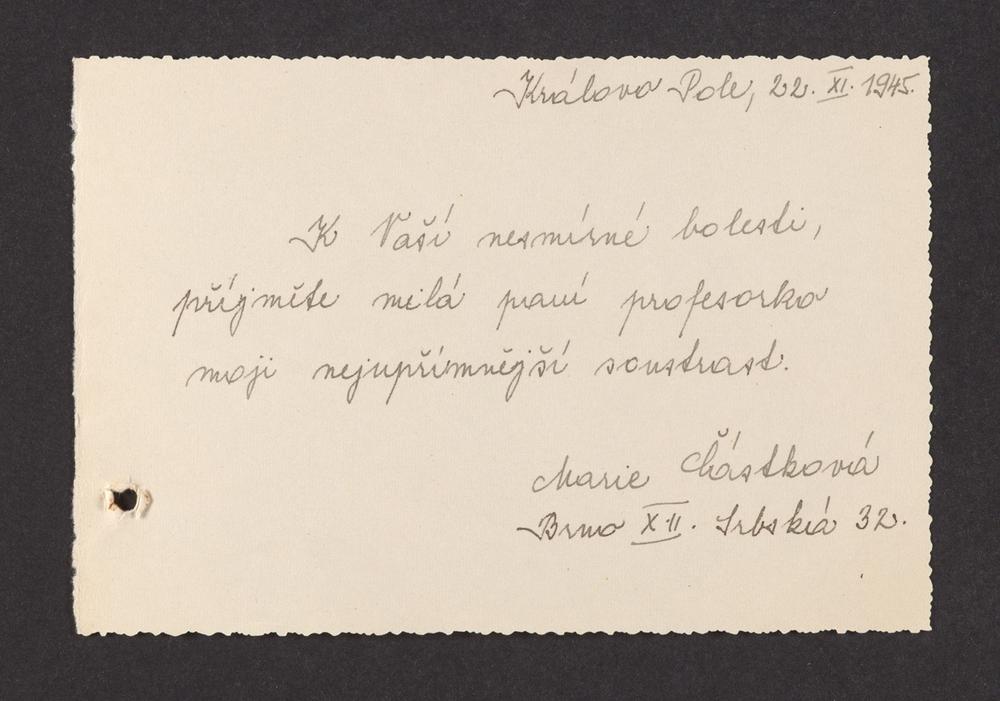 Královo Pole, 22. XI. 1945.
K Vaší nesmírné bolesti,
příjměte milá paní profesorko
moji nejupřímnější soustrast.
Marie Částková
Brno XII. Srbská 32.